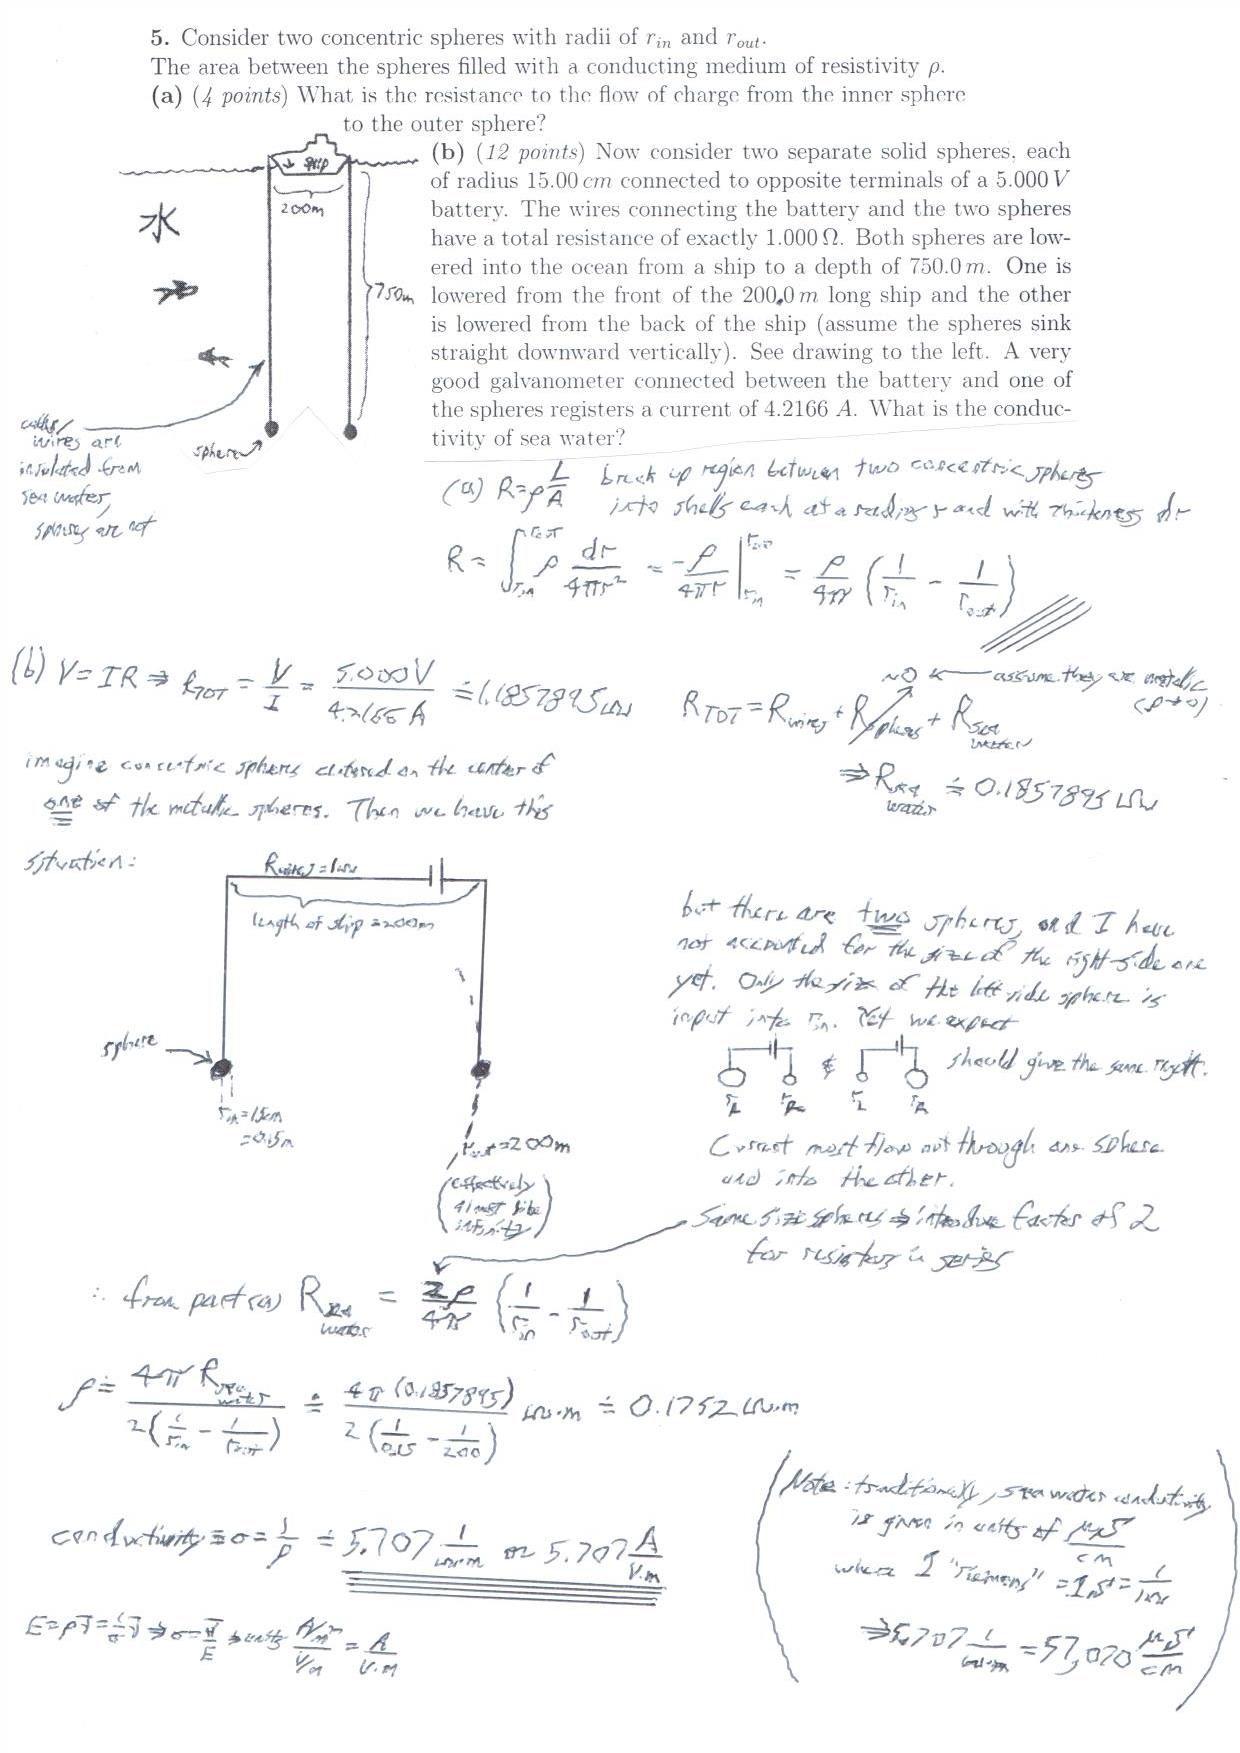 5. Consider two concentric spheres with radii of r_in and r_out.
The area between the spheres filled with a conducting medium of resistivity ρ.
(a) (4 points) What is the resistance to the flow of charge from the inner sphere
to the outer sphere?
(b) (12 points) Now consider two separate solid spheres, each
of radius 15.00 cm connected to opposite terminals of a 5.000 V
battery. The wires connecting the battery and the two spheres
have a total resistance of exactly 1.000 Ω. Both spheres are low-
ered into the ocean from a ship to a depth of 750.0 m. One is
lowered from the front of the 200.0 m long ship and the other
is lowered from the back of the ship (assume the spheres sink
straight downward vertically). See drawing to the left. A very
good galvanometer connected between the battery and one of
the spheres registers a current of 4.2166 A. What is the conduc-
tivity of sea water?
ship
200m
水
750m
wires are
insulated from
sea water,
spheres are not
sphere
(a) R=ρ L/A break up region between two concentric spheres
into shells each at a radius r and with thickness dr
R = ∫_{r_in}^{r_out} ρ dr/4πr² = -ρ/4πr |_{r_in}^{r_out} = ρ/4π (1/r_in - 1/r_out)
(b) V=IR ⇒ R_TOT = V/I = 5.000V/4.2166A ≐ 1.1857895 Ω
R_TOT = R_wires + R_spheres + R_sea water
NO ← assume they are metallic
(ρ→0)
⇒ R_sea water ≐ 0.1857895 Ω
imagine concentric spheres centered on the center of
one of the metallic spheres. Then we have this
situation:
R_wires = 1Ω
length of ship = 200m
sphere
r_in = 15cm
= 0.15m
r_out = 200m
(effectively
almost like
infinity)
but there are two spheres, and I have
not accounted for the size of the right side one
yet. Only the size of the left side sphere is
input into r_in. Yet we expect
r_L r_R & r_L r_R should give the same result.
Current must flow out through one sphere
and into the other.
Same size spheres ⇒ introduce factor of 2
for resistors in series
∴ from part (a) R_sea water = 2ρ/4π (1/r_in - 1/r_out)
ρ ≐ 4π R_sea water / 2(1/r_in - 1/r_out) ≐ 4π (0.1857895) / 2(1/0.15 - 1/200) Ω·m ≐ 0.1752 Ω·m
conductivity ≡ σ = 1/ρ ≐ 5.707 1/Ω·m or 5.707 A/V·m
E = ρJ = 1/σ J ⇒ σ = J/E ⇒ units A/m² / V/m = A/V·m
(Note: traditionally, sea water conductivity
is given in units of μS/cm
where 1 "siemens" = 1S = 1/1Ω
⇒ 5.707 1/Ω·m = 57,070 μS/cm)